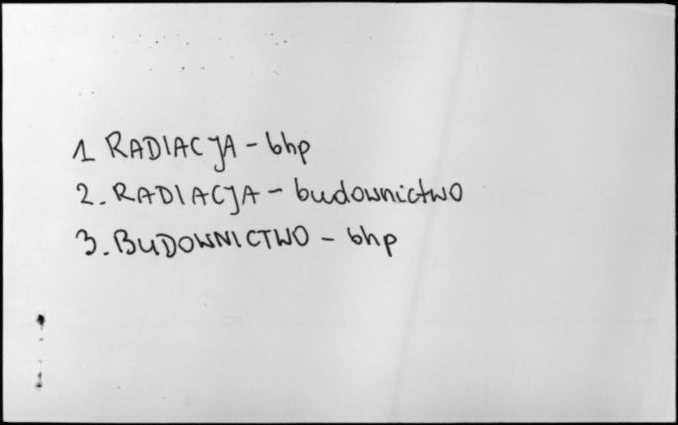 1 RADIACJA - bhp
2. RADIACJA - budownictwo
3. BUDOWNICTWO - bhp